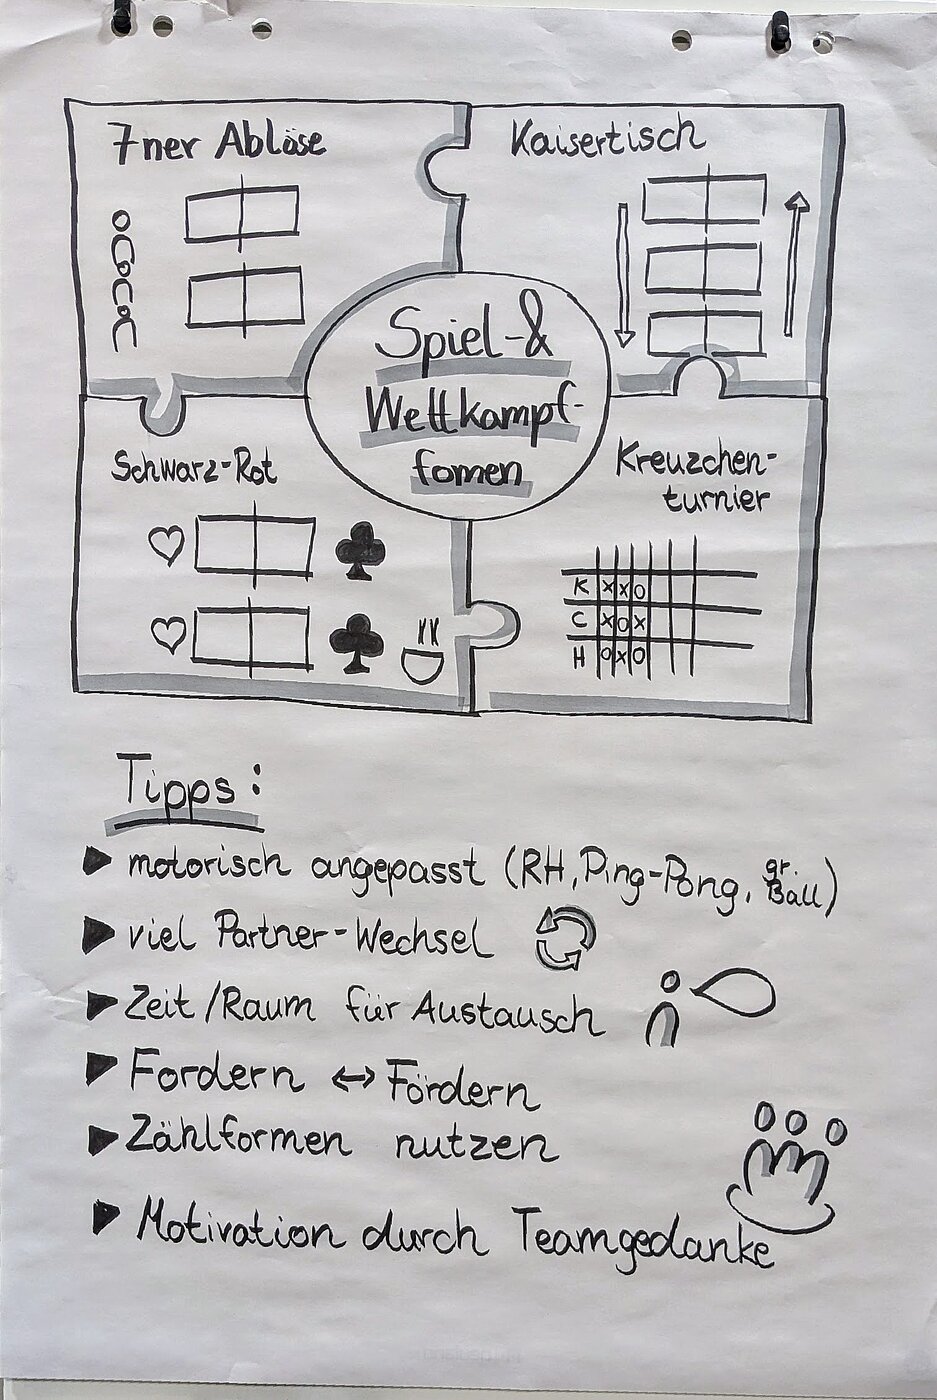 7ner Ablöse
Kaisertisch
Spiel-&
Wettkampf-
fomen
Schwarz-Rot
Kreuzchen-
turnier
K x x o
C x o x
H o x o
Tipps:
motorisch angepasst (RH, Ping-Pong, gr. Ball)
viel Partner-Wechsel
Zeit/Raum für Austausch
Fordern ↔ Fördern
Zählformen nutzen
Motivation durch Teamgedanke